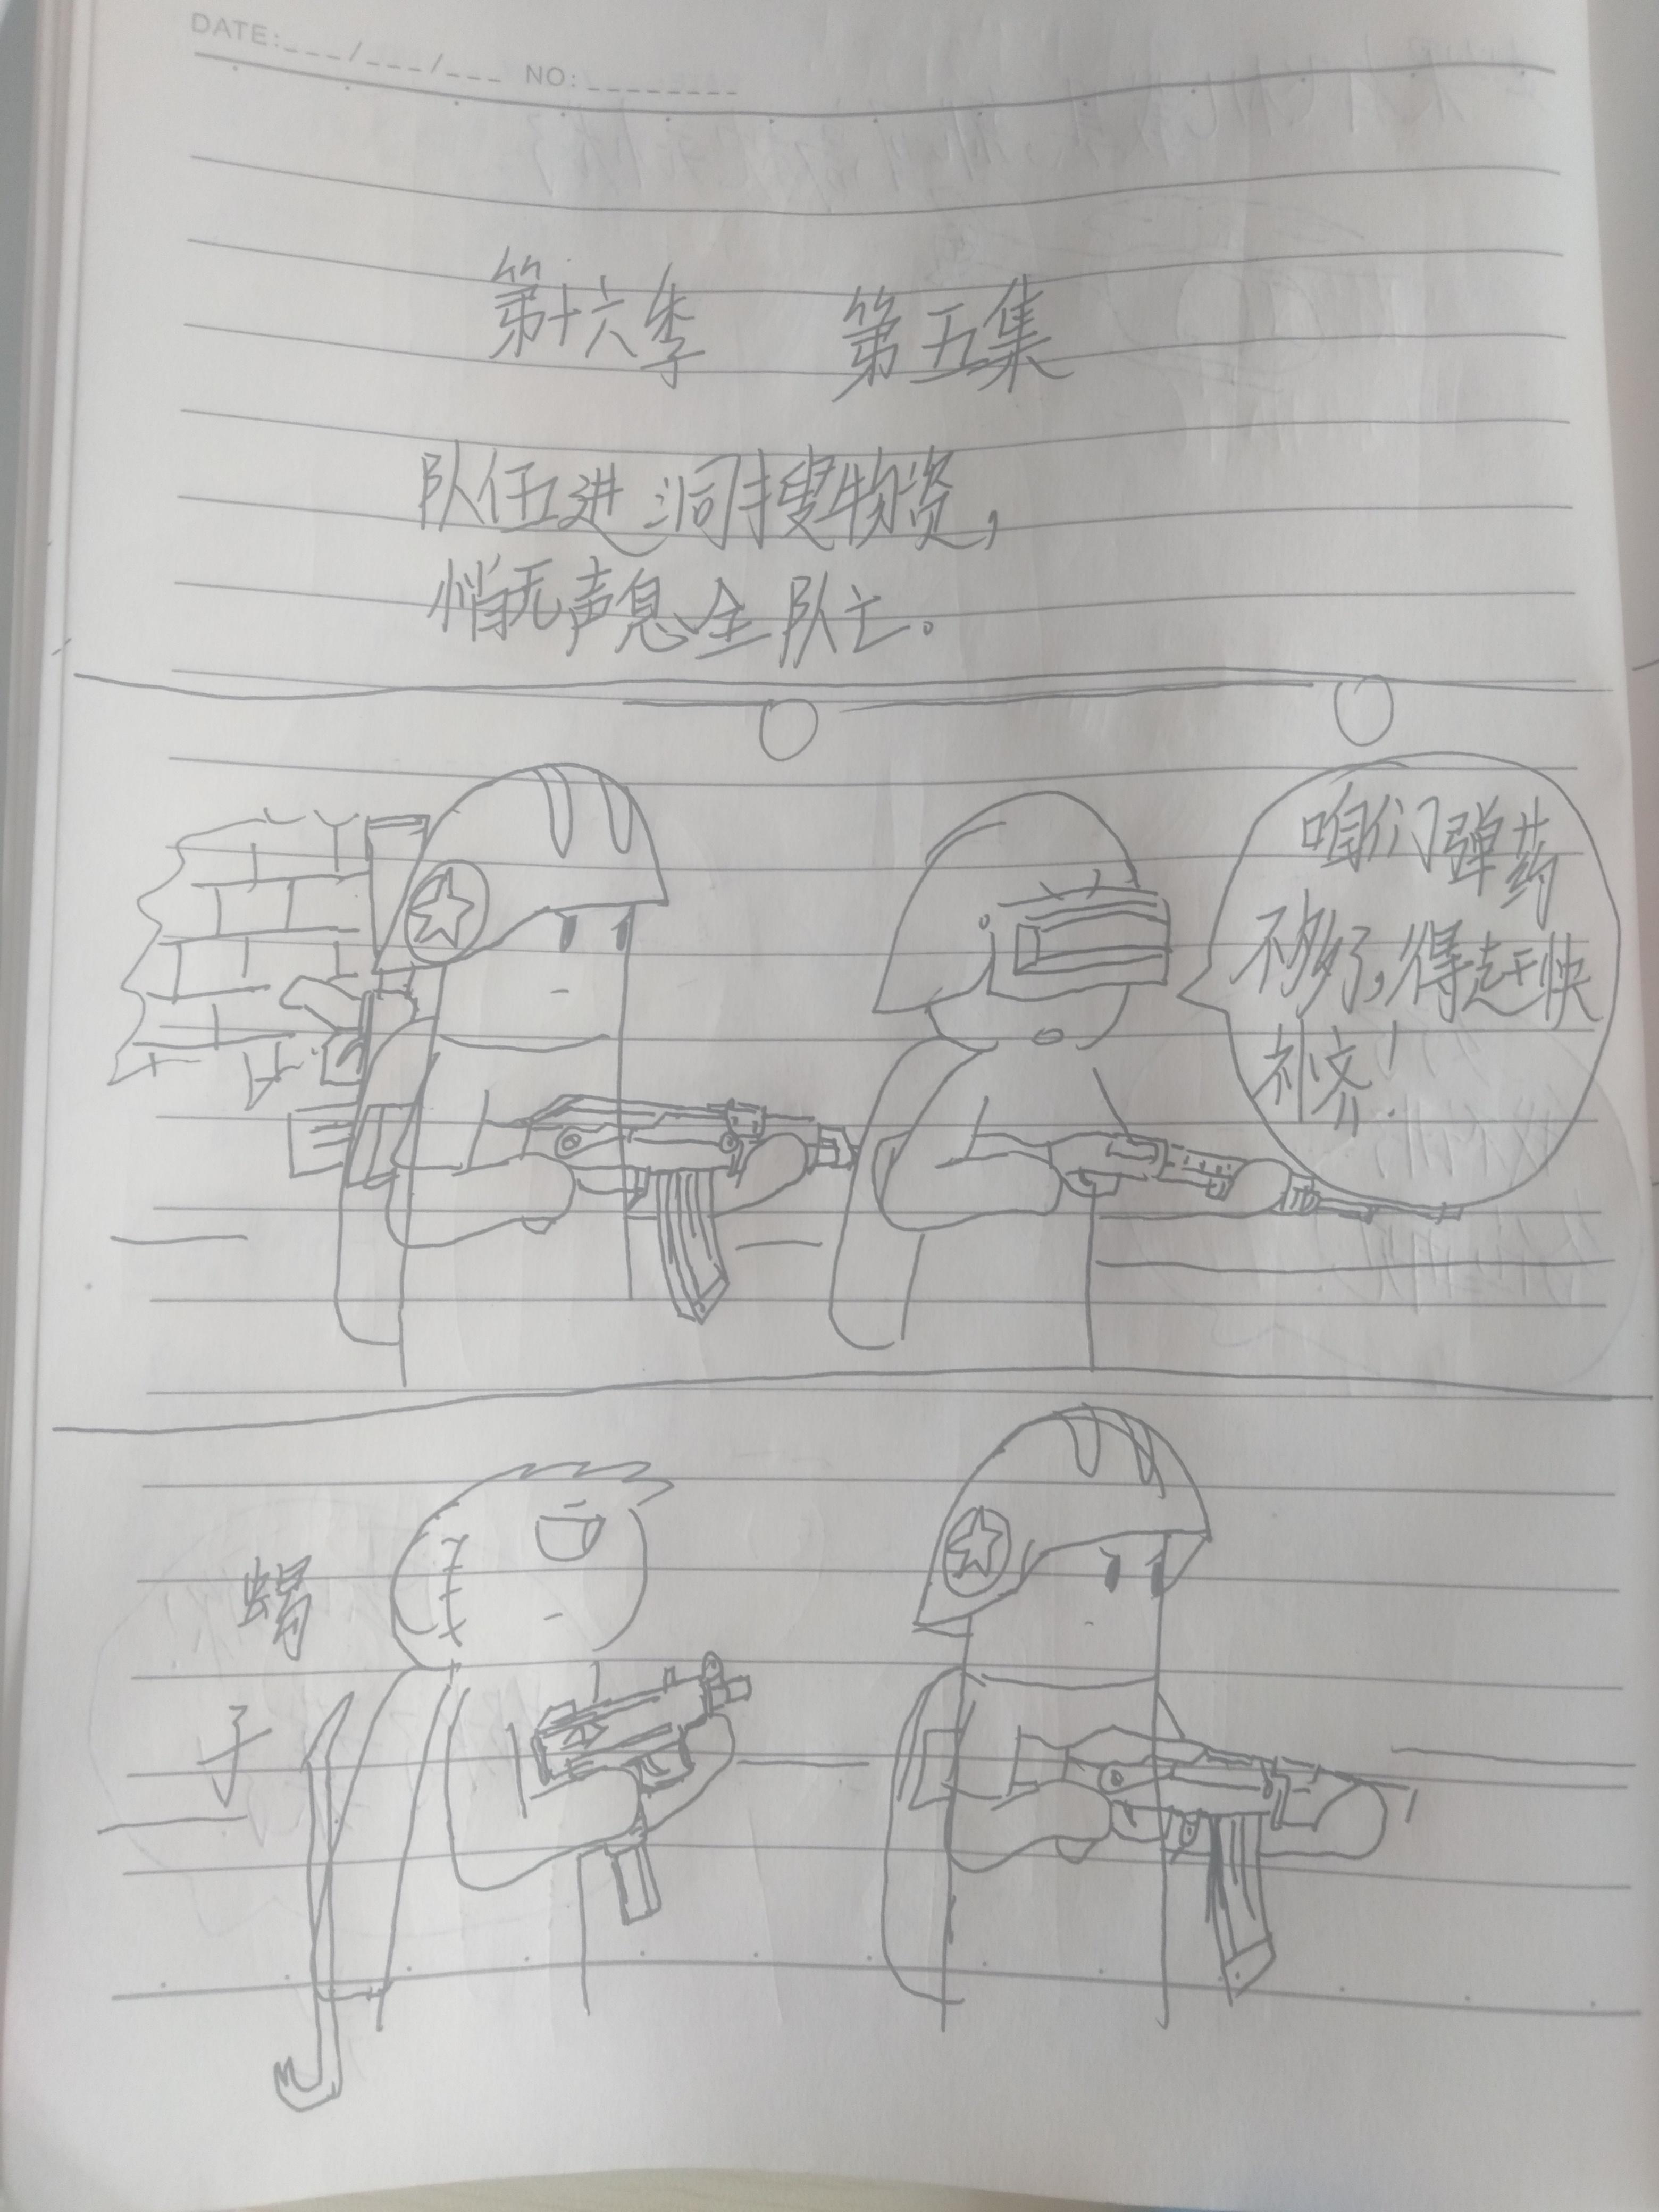 DATE:___/___/___ NO:________
第十六季 第五集
队伍进洞搜物资，
悄无声息全队亡。
咱们弹药
不够了，得赶快
补齐！
蝎
子